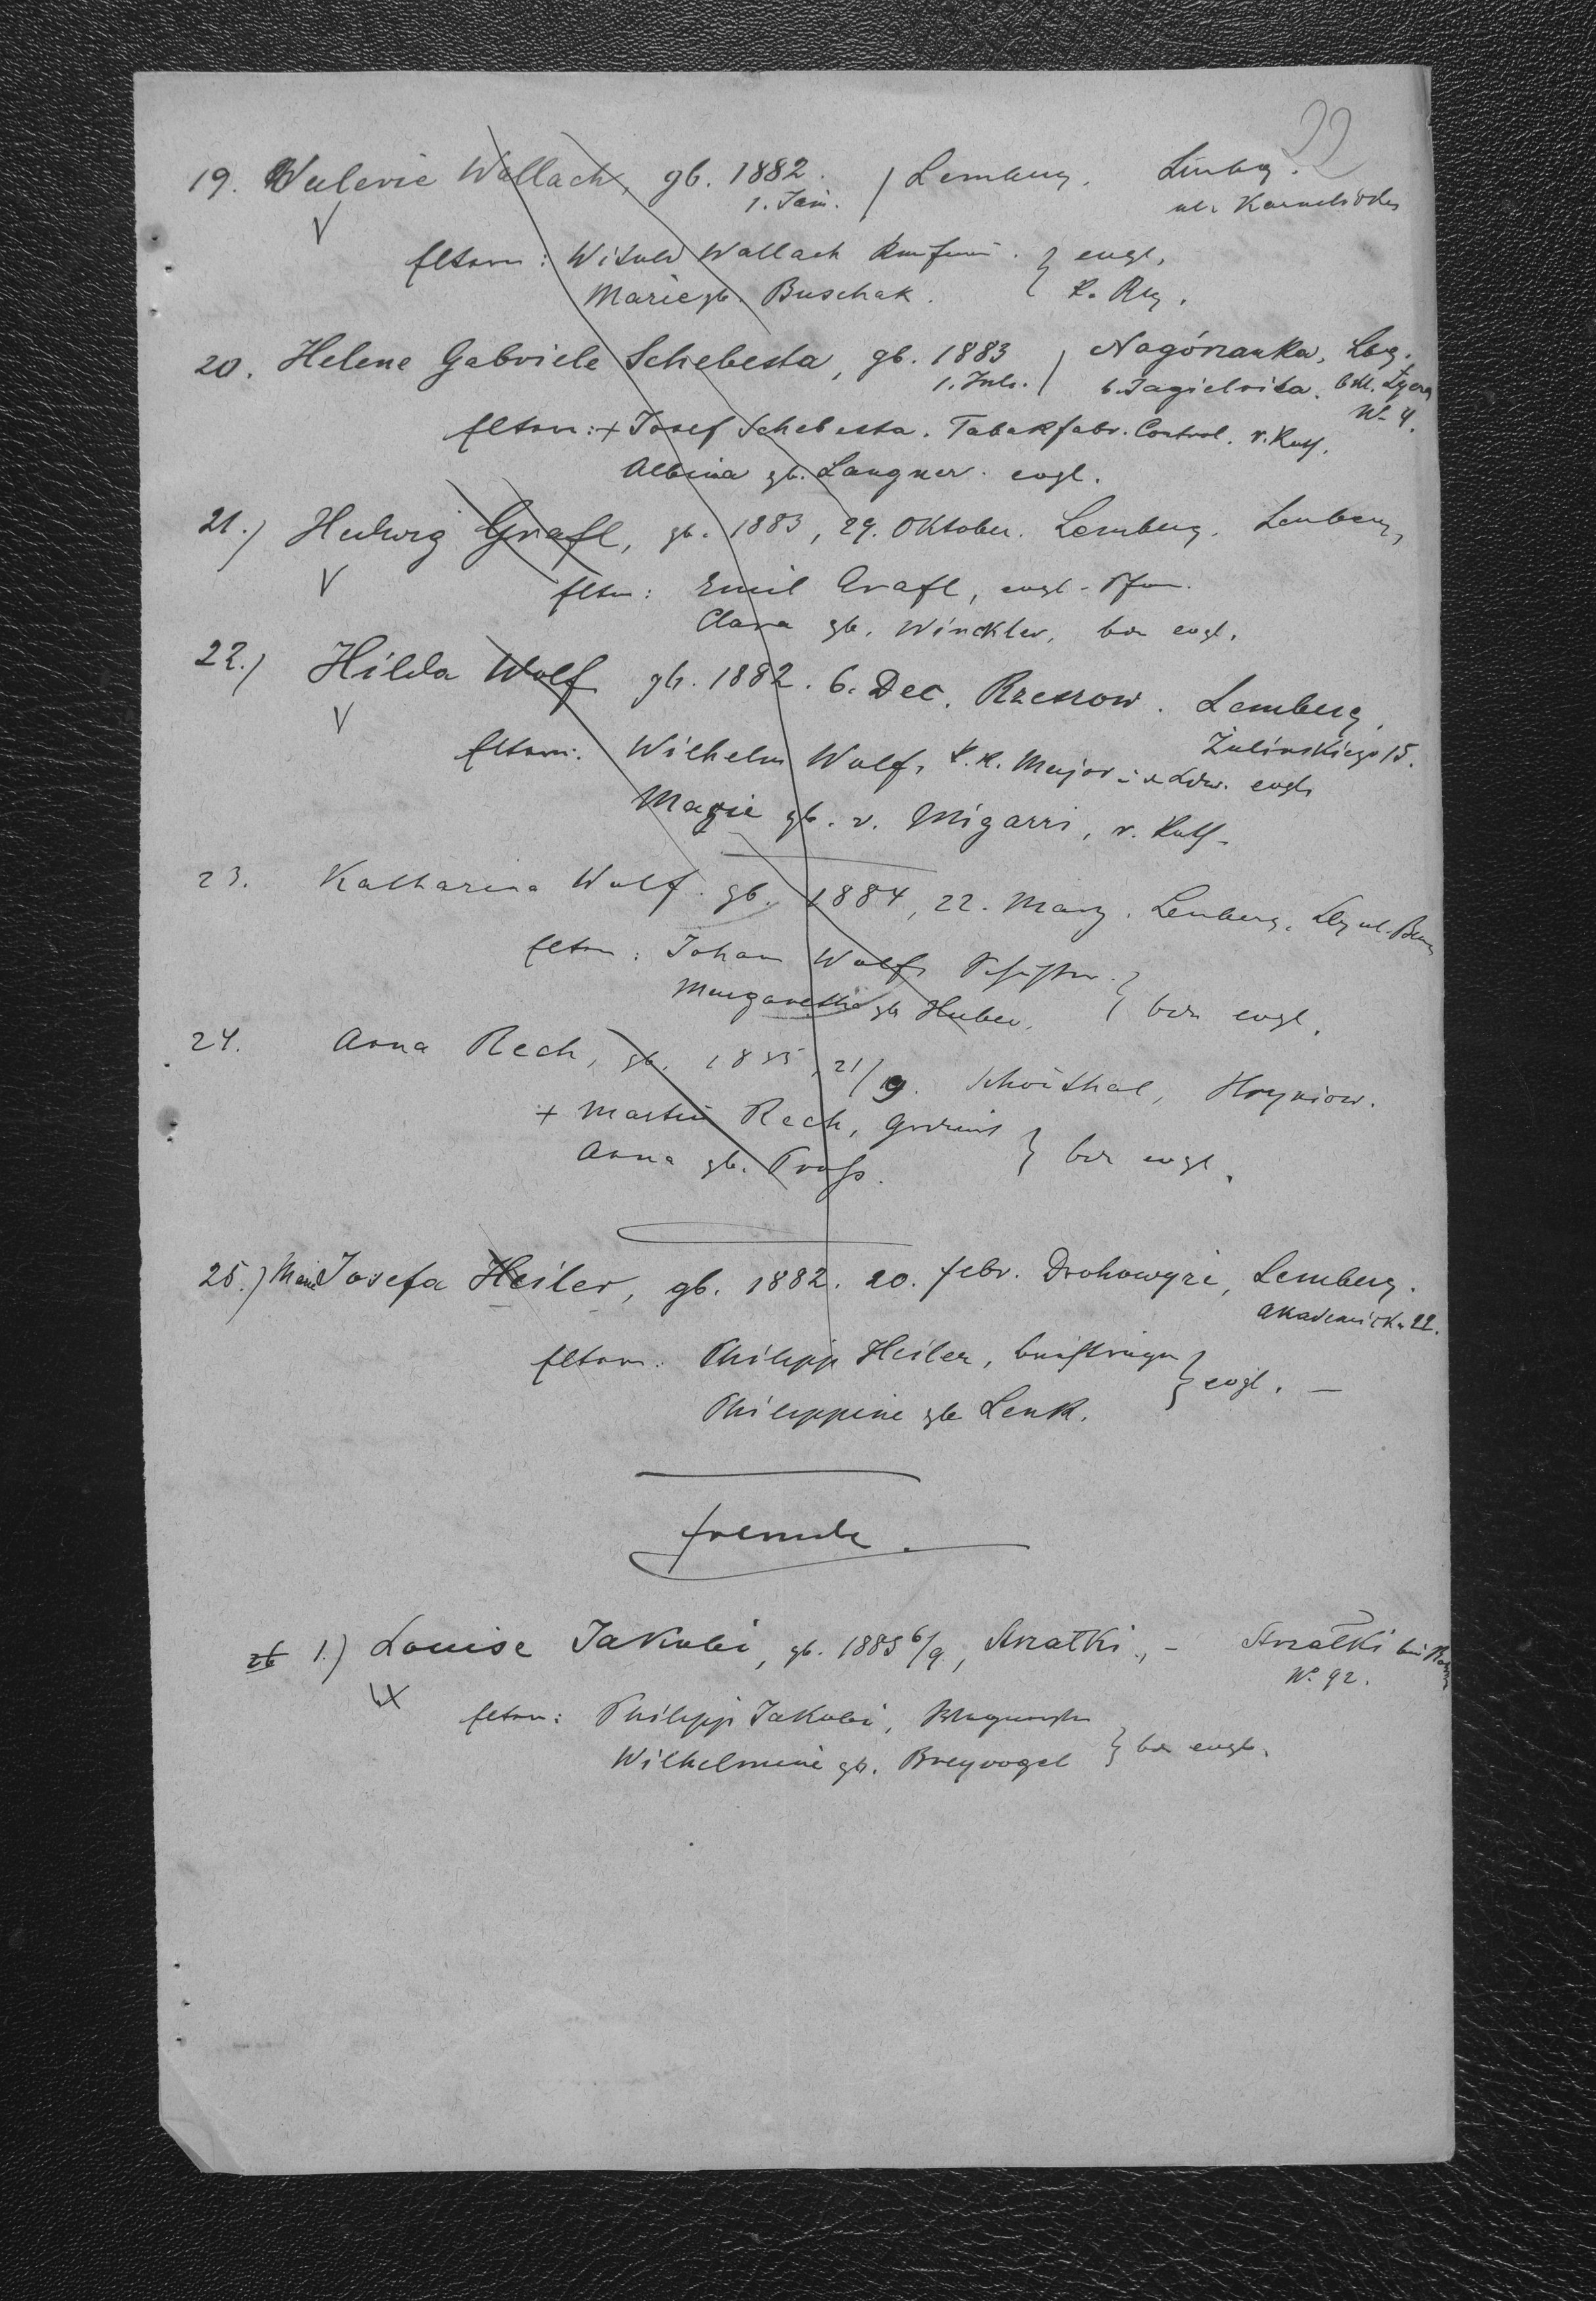 22
19. Valerie Wallach, gb. 1882. / Lemberg. Lembg.
1. Jän.
Eltern: Witold Wallach Kaufm. } evgl.
Marie gb. Buschak.
20. Helene Gabriele Schebesta, gb. 1883 / Nagórzanka, Lbg.
1. Juli. / b. Jagielnica.
No 4.
Eltern: + Josef Schebesta. Tabakfabr. Control. r. kath.
Albina gb. Langner. evgl.
21.) Hedwig Grafl, gb. 1883, 29. Oktober. Lemberg. Lemberg,
Eltern: Emil Grafl, evgl. Pfarr.
Clara gb. Winckler, bde evgl.
22.) Hilda Wolf gb. 1882. 6. Dec. Rzeszow. Lemberg,
Zulinskiego 15.
Eltern: Wilhelm Wolf, k. k. Major evgl.
Marie gb. v. Migazzi, r. kath.
23. Katharina Wolf. gb. 1884, 22. März. Lemberg, Lbg ul.
Eltern: Johann Wolf,
Margarethe gb Huber, } bde evgl.
24. Anna Rech, gb. 1885, 21/9. Schönthal, Hryniow.
+ Martin Rech, Grundwirt } bde evgl.
Anna gb. Pross.
25.) Marie Josefa Heiler, gb. 1882. 20. Febr. Drohowyze, Lemberg.
Akademicka 22.
Eltern: Philipp Heiler, Briefträger } evgl. —
Philippine gb Lenk.
Fremde.
26 1.) Louise Jakobi, gb. 1885 6/9, Strzałki, – Strzałki bei
No 92.
Eltern: Philipp Jakobi,
Wilhelmine gb. Breyvogel } bde evgl.